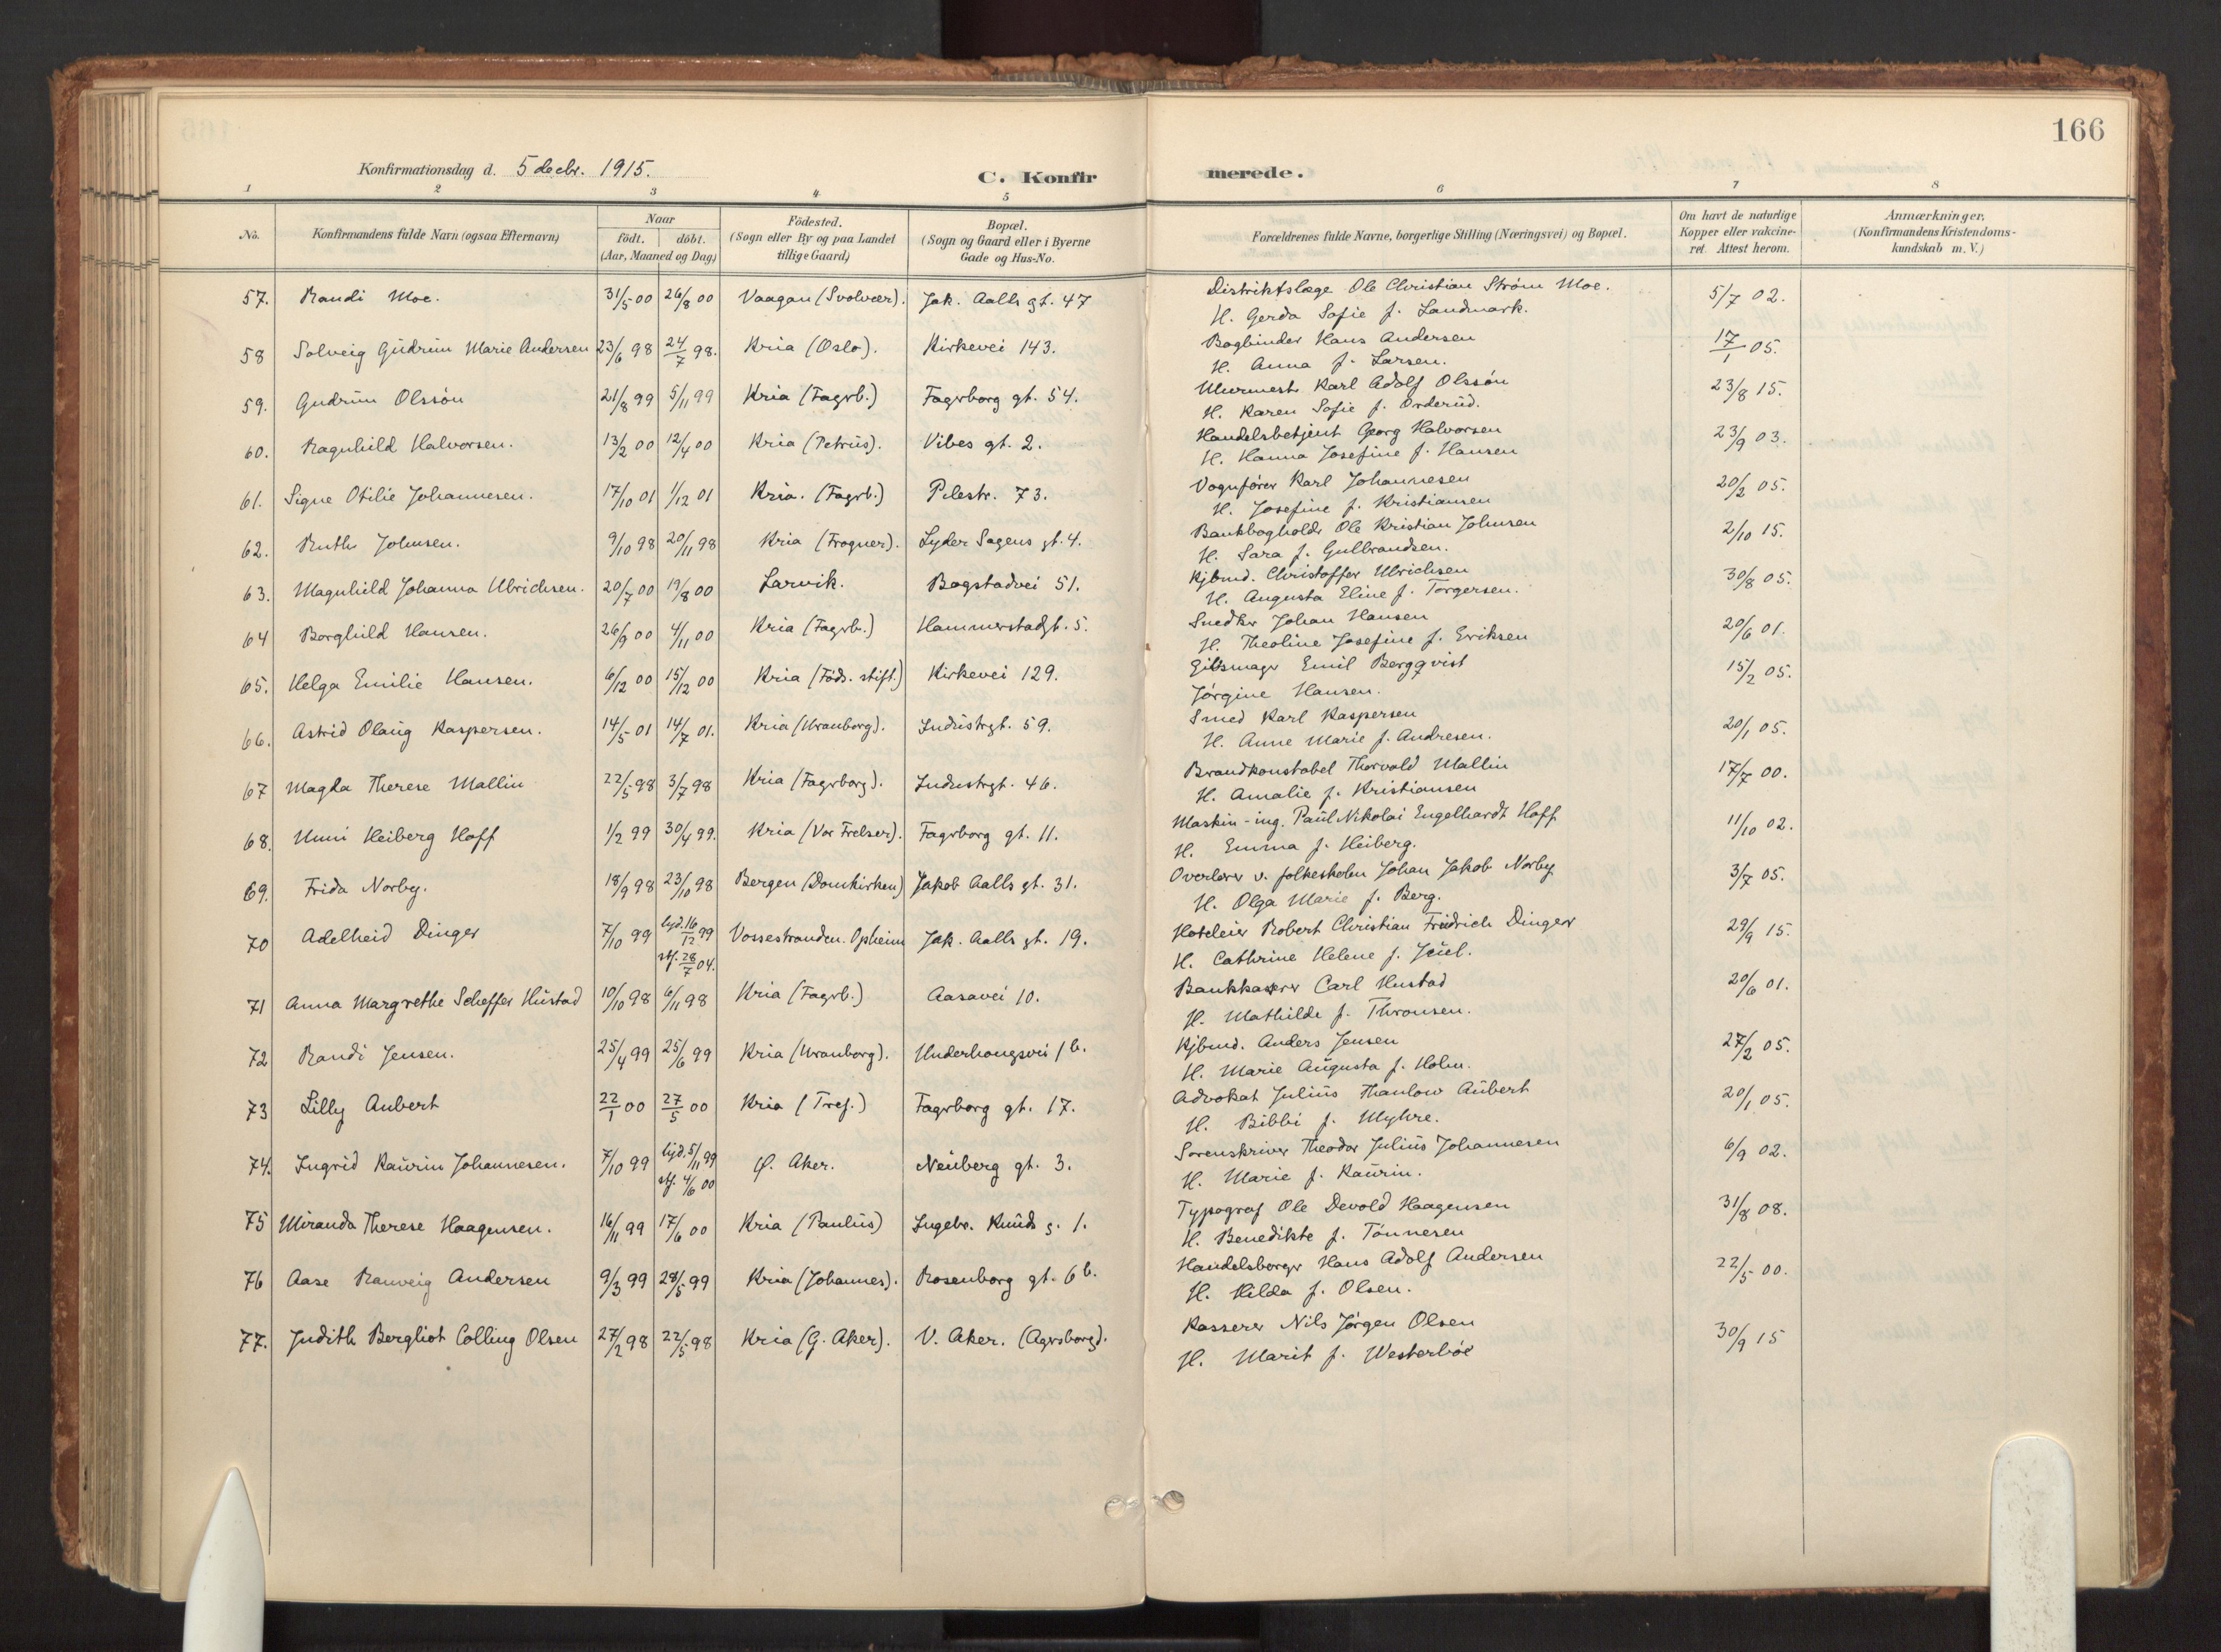 166
Konfirmationsdag d. 5 decbr. 1915.
C. Konfirmerede.
1 2 3 4 5 6 7 8
No.
Konfirmandens fulde Navn (ogsaa Efternavn)
Naar
födt. döbt.
(Aar, Maaned og Dag)
Födested.
(Sogn eller By og paa Landet
tillige Gaard)
Bopæl.
(Sogn og Gaard eller i Byerne
Gade og Hus-No.
Forældrenes fulde Navne, borgerlige Stilling (Næringsvei) og Bopæl.
Om havt de naturlige
Kopper eller vakcine-
ret. Attest herom.
Anmærkninger.
(Konfirmandens Kristendoms-
kundskab m. V.)
57. Randi Moe. 31/5 00 26/8 00 Vaagan (Svolvær). Jak. Aalls gt. 47 Distriktslæge Ole Christian Strøm Moe. 5/7 02.
H. Gerda Sofie f. Landmark.
58 Solveig Gudrun Marie Andersen 23/6 98 24/7 98. Kria (Oslo). Kirkevei 143. Bogbinder Hans Andersen 17/1 05.
H. Anna f. Larsen.
59. Gudrun Olssön 21/8 99 5/11 99 Kria (Fagrb.) Fagerborg gt. 54. Murmest. Karl Adolf Olssön 23/8 15.
H. Karen Sofie f. Orderud.
60. Ragnhild Halvorsen. 13/2 00 12/4 00 Kria (Petrus). Vibes gt. 2. Handelsbetjent Georg Halvorsen 23/9 03.
H. Hanna Josefine f. Hansen
61. Signe Otilie Johannesen. 17/10 01 1/12 01 Kria. (Fagrb.) Pilestr. 73. Vognfører Karl Johannesen 20/2 05.
H. Josefine f. Kristiansen
62. Ruth Johnsen. 9/10 98 20/11 98 Kria (Frogner). Lyder Sagens gt. 4. Bankbogholder Ole Kristian Johnsen 2/10 15.
H. Sara f. Gulbrandsen.
63. Magnhild Johanna Ulrichsen. 20/7 00 19/8 00 Larvik. Bogstadvei 51. Kjbmd. Christoffer Ulrichsen 30/8 05.
H. Augusta Eline f. Torgersen.
64 Borghild Hansen. 26/9 00 4/11 00 Kria (Fagrb.) Hammerstadgt. 5. Snedker Johan Hansen 20/6 01.
H. Theoline Josefine f. Eriksen
65. Helga Emilie Hansen. 6/12 00 15/12 00 Kria (Föds. stift.) Kirkevei 129. Gibsmager Emil Bergqvist 15/2 05.
Jörgine Hansen.
66. Astrid Olaug Kaspersen. 14/5 01 14/7 01. Kria (Uranborg). Industrgt. 59. Smed Karl Kaspersen 20/1 05.
H. Anne Marie f. Andresen.
67 Magda Therese Mallin 22/5 98 3/7 98 Kria (Fagrborg). Industrgt. 46. Brandkonstabel Thorvald Mallin 17/7 00.
H. Amalie f. Kristiansen
68. Unni Heiberg Hoff 1/2 99 30/4 99. Kria (Vor Frelser). Fagrborg gt. 11. Maskin-ing. Paul Nikolai Engelhardt Hoff 11/10 02.
H. Emma f. Heiberg.
69. Frida Norby. 18/9 98 23/10 98 Bergen (Domkirken) Jakob Aalls gt. 31. Overlærer v. folkeskolen Johan Jakob Norby 3/7 05.
H. Olga Marie f. Berg.
70 Adelheid Dinger 7/10 99 hjd. 16/12 99 Vossestranden. Opheim Jak. Aalls gt. 19. Hoteleier Robert Christian Friedrich Dinger 29/9 15.
stf. 28/7 04. H. Cathrine Helene f. Juul.
71 Anna Margrethe Scheffer Hustad 10/10 98 6/11 98 Kria (Fagrb.) Aasavei 10. Bankkasserer Carl Hustad 20/6 01.
H. Mathilde f. Thronsen.
72 Randi Jensen. 25/4 99 25/6 99 Kria (Uranborg). Underhaugsvei 1 b. Kjbmd. Anders Jensen 27/2 05.
H. Marie Augusta f. Holm.
73 Lilly Aubert 22/1 00 27/5 00 Kria (Tref.) Fagrborg gt. 17. Advokat Julius Thaulow Aubert 20/1 05.
H. Bibbi f. Myhre.
74. Ingrid Kaurin Johannesen. 7/10 99 hjd. 5/11 99 Ø. Aker. Neuberg gt. 3. Sorenskriver Theodor Julius Johannesen 6/9 02.
stf. 4/6 00 H. Marie f. Kaurin.
75 Miranda Therese Haagensen. 16/11 99 17/6 00 Kria (Paulus) Ingebr. Knuds g. 1. Typograf Ole Devold Haagensen 31/8 08.
H. Benedikte f. Tönnesen
76 Aase Ranveig Andersen 9/3 99 28/5 99 Kria (Johannes). Rosenborg gt. 6 b. Handelsborger Hans Adolf Andersen 22/5 00.
H. Hilda f. Olsen.
77. Judith Bergliot Colling Olsen 27/2 98 22/5 98 Kria (G. Aker). V. Aker. (Agrsborg). Kasserer Nils Jörgen Olsen 30/9 15
H. Marit f. Westerböe